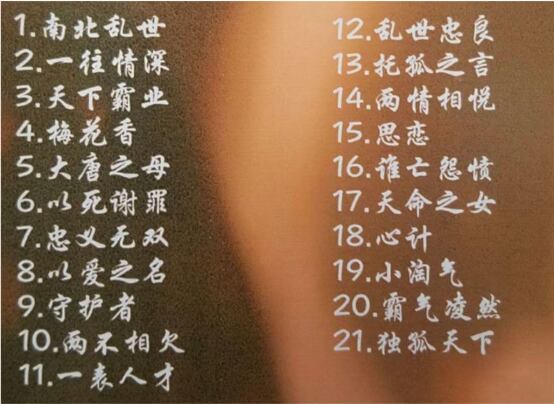 1.南北乱世
2.一往情深
3.天下霸业
4.梅花香
5.大唐之母
6.以死谢罪
7.忠义无双
8.以爱之名
9.守护者
10.两不相欠
11.一表人才
12.乱世忠良
13.托孤之言
14.两情相悦
15.思恋
16.谁亡怨愤
17.天命之女
18.心计
19.小淘气
20.霸气凌然
21.独孤天下